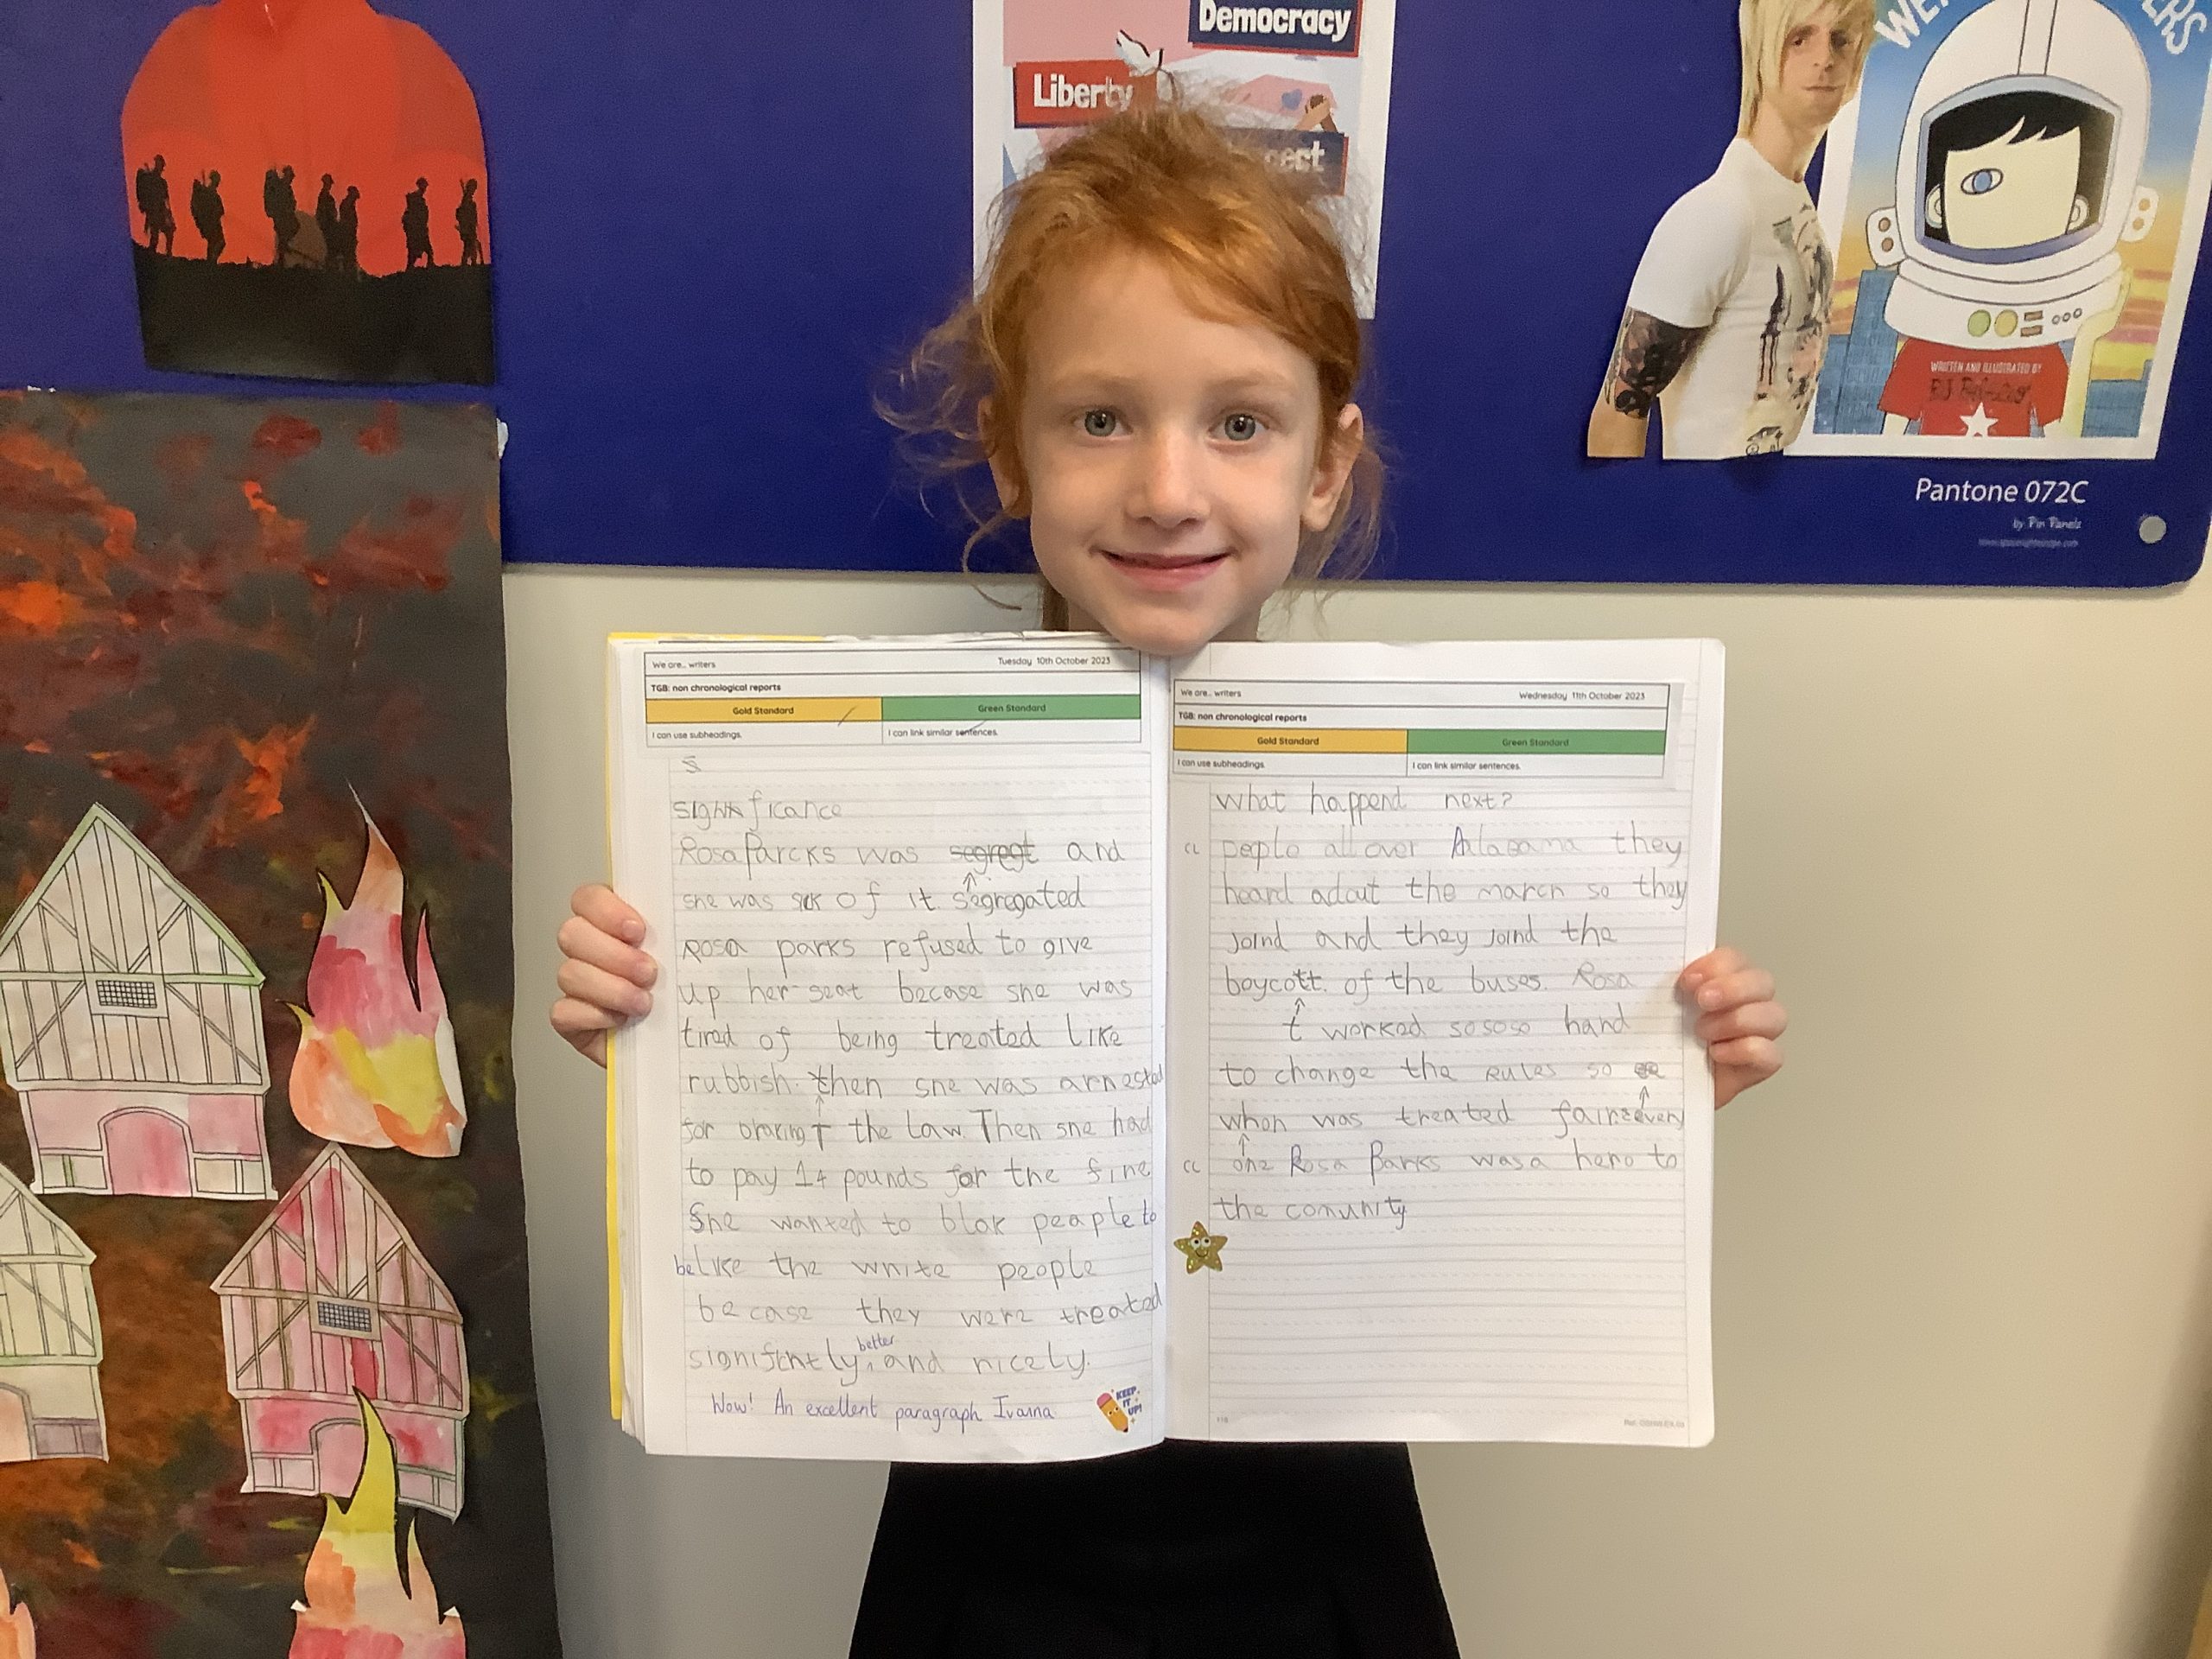 Democracy
Liberty
WRITTEN AND ILLUSTRATED BY
Pantone 072C
by Pin Panelz
We are... writers
Tuesday 10th October 2023
TGB: non chronological reports
Gold Standard
Green Standard
I can use subheadings.
I can link similar sentences.
significance
Rosa Parcks was segregt and
she was sick of it. segregated
Rosa parks refused to give
up her seat becase she was
tired of being treated like
rubbish. then she was arnested
for braking T the law. Then she had
to pay 14 pounds for the fine
She wanted to blak peaple to
be like the white people
be case they were treated
better
signifintly, and nicely.
Wow! An excellent paragraph Ivanna
KEEP
IT
UP!
We are... writers
Wednesday 11th October 2023
TGB: non chronological reports
Gold Standard
Green Standard
I can use subheadings.
I can link similar sentences.
What happend next?
CL people all over Alabama they
heard adout the march so they
joind and they joind the
boycott. of the buses. Rosa
t worked sososo hard
to change the rules so
when was treated even
CL one Rosa Parks was a hero to
the comunity